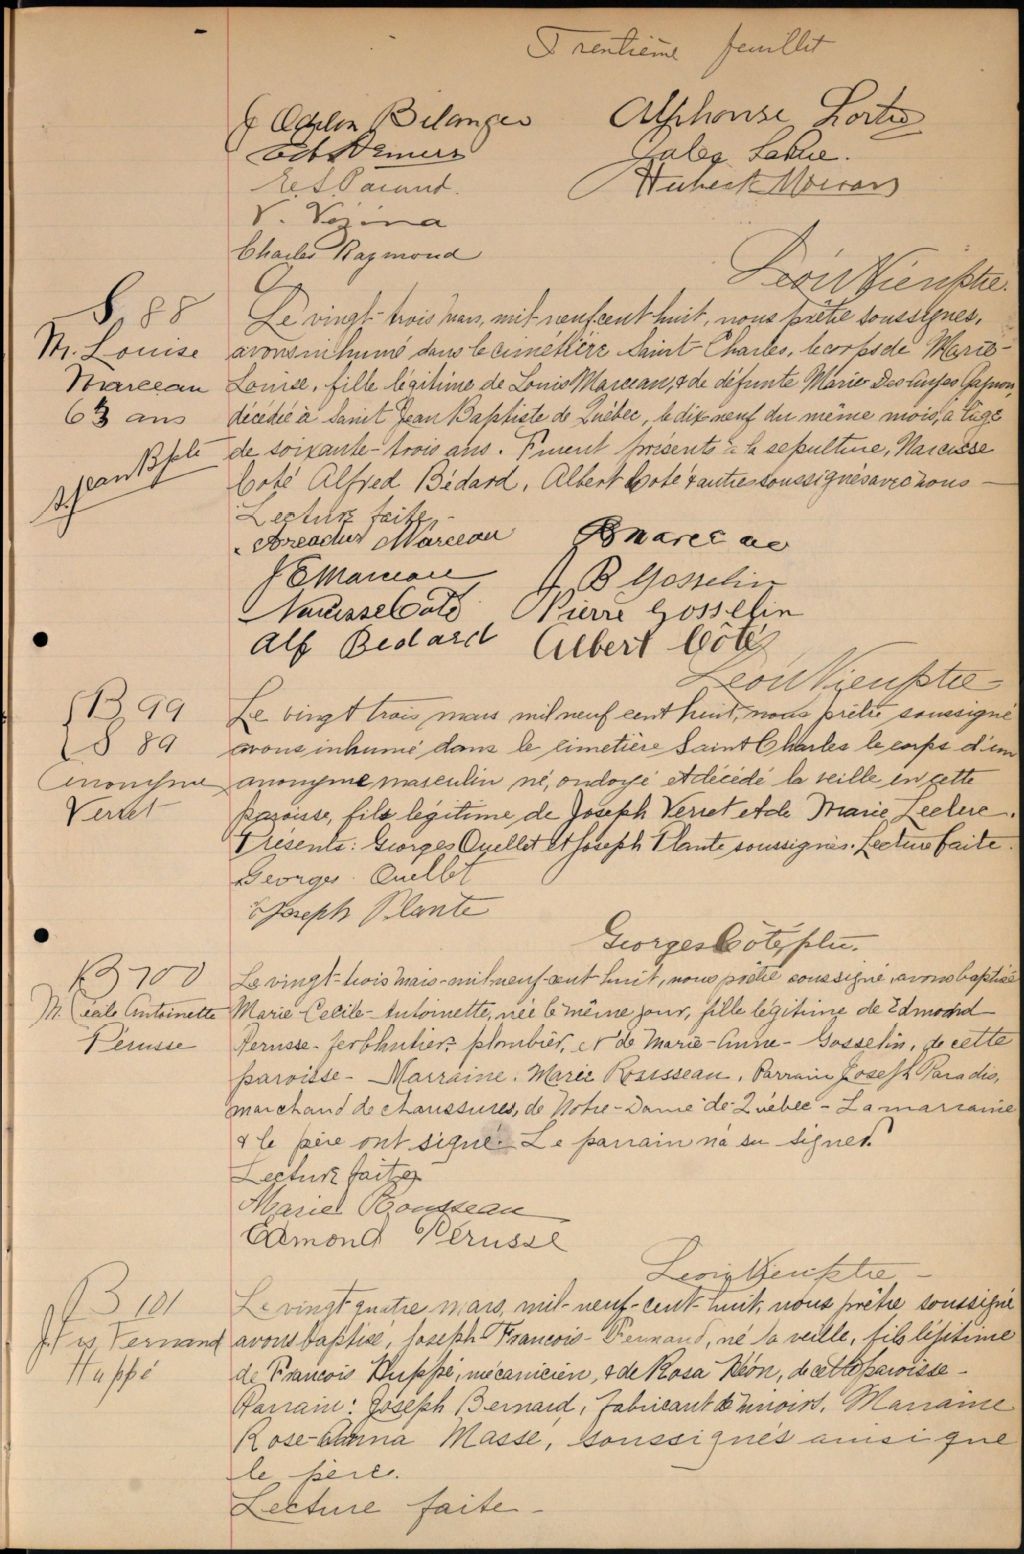 Trentième feuillet
J Odilon Bélanger Alphonse Lortie
Ed Demers Jules LaRue.
E. S. Parand. Hubert Moisan
V. Vézina
Charles Raymond
Léon Vien ptre.
S. 88
M. Louise
Marceau
63 ans
St Jean Bpte
Le vingt-trois mars, mil neuf cent huit, nous prêtre soussignes,
avons inhumé dans le cimétière Saint-Charles, le corps de Marie-
Louise, fille légitime de Louis Marceau, & de défunte Marie Des Anges Gagnon,
décédée à Saint Jean Baptiste de Québec, le dix neuf du même mois, a l'age
de soixante-trois ans. Furent présents à la sepulture, Narcisse
Coté Alfred Bédard, Albert Coté & autres soussignés avec nous -
Lecture faite,-
Arcadius Marceau
J E Marceau J B Gosselin
Narcisse Coté Pierre Gosselin
Alf Bedard Albert Côté
Léon Vien ptre -
B 99
S 89
Anonyme
Verret
Le vingt trois mars mil neuf cent huit, nous prêtre soussigné
avons inhumé dans le cimetière Saint Charles le corps d'un
anonyme masculin né, ondoyé et décédé la veille en cette
paroisse, fils légitime de Joseph Verret et de Marie Leclerc.
Présents: Georges Ouellet et Joseph Plante soussignés. Lecture faite.
Georges Ouellet
Joseph Plante
Georges Côté, ptre.
B 100
M. Cécile Antoinette
Pérusse
Le vingt-trois mars-mil neuf-cent huit, nous prêtre soussigné, avons baptisé
Marie Cecile-Antoinette, née le même jour, fille légitime de Edmond
Perusse- ferblantier, plombier, et de Marie-Anne- Gosselin, de cette
paroisse- Marraine. Marie Rousseau, Parrain Joseph Paradis,
marchand de chaussures, de Notre-Dame de Québec - La marraine
& le père ont signé. Le parrain n'a su signer.
Lecture faite
Marie Rousseau
Edmond Pérusse
Léon Vien ptre -
B 101
J. Frs Fernand
Huppé
Le vingt quatre mars, mil-neuf-cent-huit, nous prêtre soussigné
avons baptisé, Joseph Francois- Fernand, né la veille, fils légitime
de Francois Huppé, mécanicien, & de Rosa Déon, de cette paroisse -
Parrain: Joseph Bernard, fabricant de miroirs, Marraine
Rose-Anna Massé, soussignés ainsi que
le père.
Lecture faite -